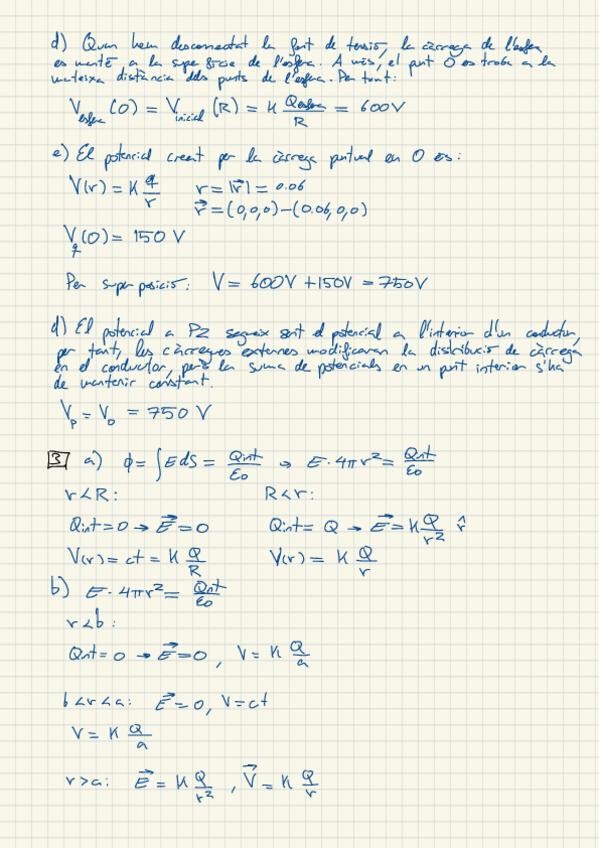 d) Quan hem desconnectat la font de tensió, la càrrega de l'esfera
es manté a la superfície de l'esfera. A més, el punt O es troba a la
mateixa distància dels punts de l'esfera. Per tant:
V_esfera (0) = V_inicial (R) = K Q_esfera / R = 600V
e) El potencial creat per la càrrega puntual en O és:
V(r) = K q/r    r = |r⃗| = 0.06
r⃗ = (0,0,0) - (0.06,0,0)
V_q (0) = 150 V
Per superposició: V = 600V + 150V = 750V
d) El potencial a P2 segueix sent el potencial a l'interior d'un conductor,
per tant, les càrregues externes modificaran la distribució de càrrega
en el conductor, però la suma de potencials en un punt interior s'ha
de mantenir constant.
V_P = V_O = 750 V
3 a) ϕ = ∫ E dS = Qint/ε0 → E · 4πr² = Qint/ε0
r < R:    R < r:
Qint = 0 → E⃗ = 0    Qint = Q → E⃗ = K Q/r² r̂
V(r) = ct = K Q/R    V(r) = K Q/r
b) E · 4πr² = Qint/ε0
r < b:
Qint = 0 → E⃗ = 0, V = K Q/a
b < r < a: E⃗ = 0, V = ct
V = K Q/a
r > a: E⃗ = K Q/r², V⃗ = K Q/r